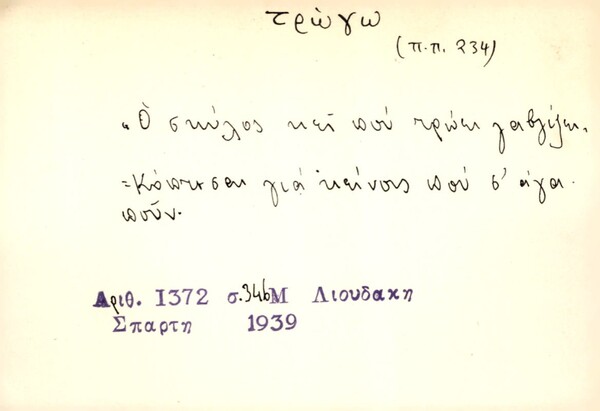 τρώγω
(π.π. 234)
"Ὁ σκύλος κεῖ πού τρώει γαβγίζει.
=Κόπτεσαι γιά κείνους πού σ' ἀγα-
ποῦν.
Αριθ. 1372 σ.346 Μ Λιουδακη
Σπαρτη 1939